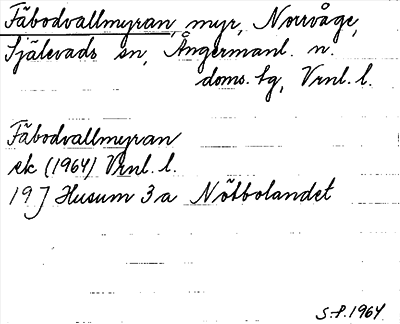 Fäbodvallmyran, myr, Norrvåge,
Själevads sn, Ångermanl. n.
doms. tg, Vrnl. l.
Fäbodvallmyran
ek (1964) Vrnl. l.
19J Husum 3a Nötbolandet
S.P. 1964